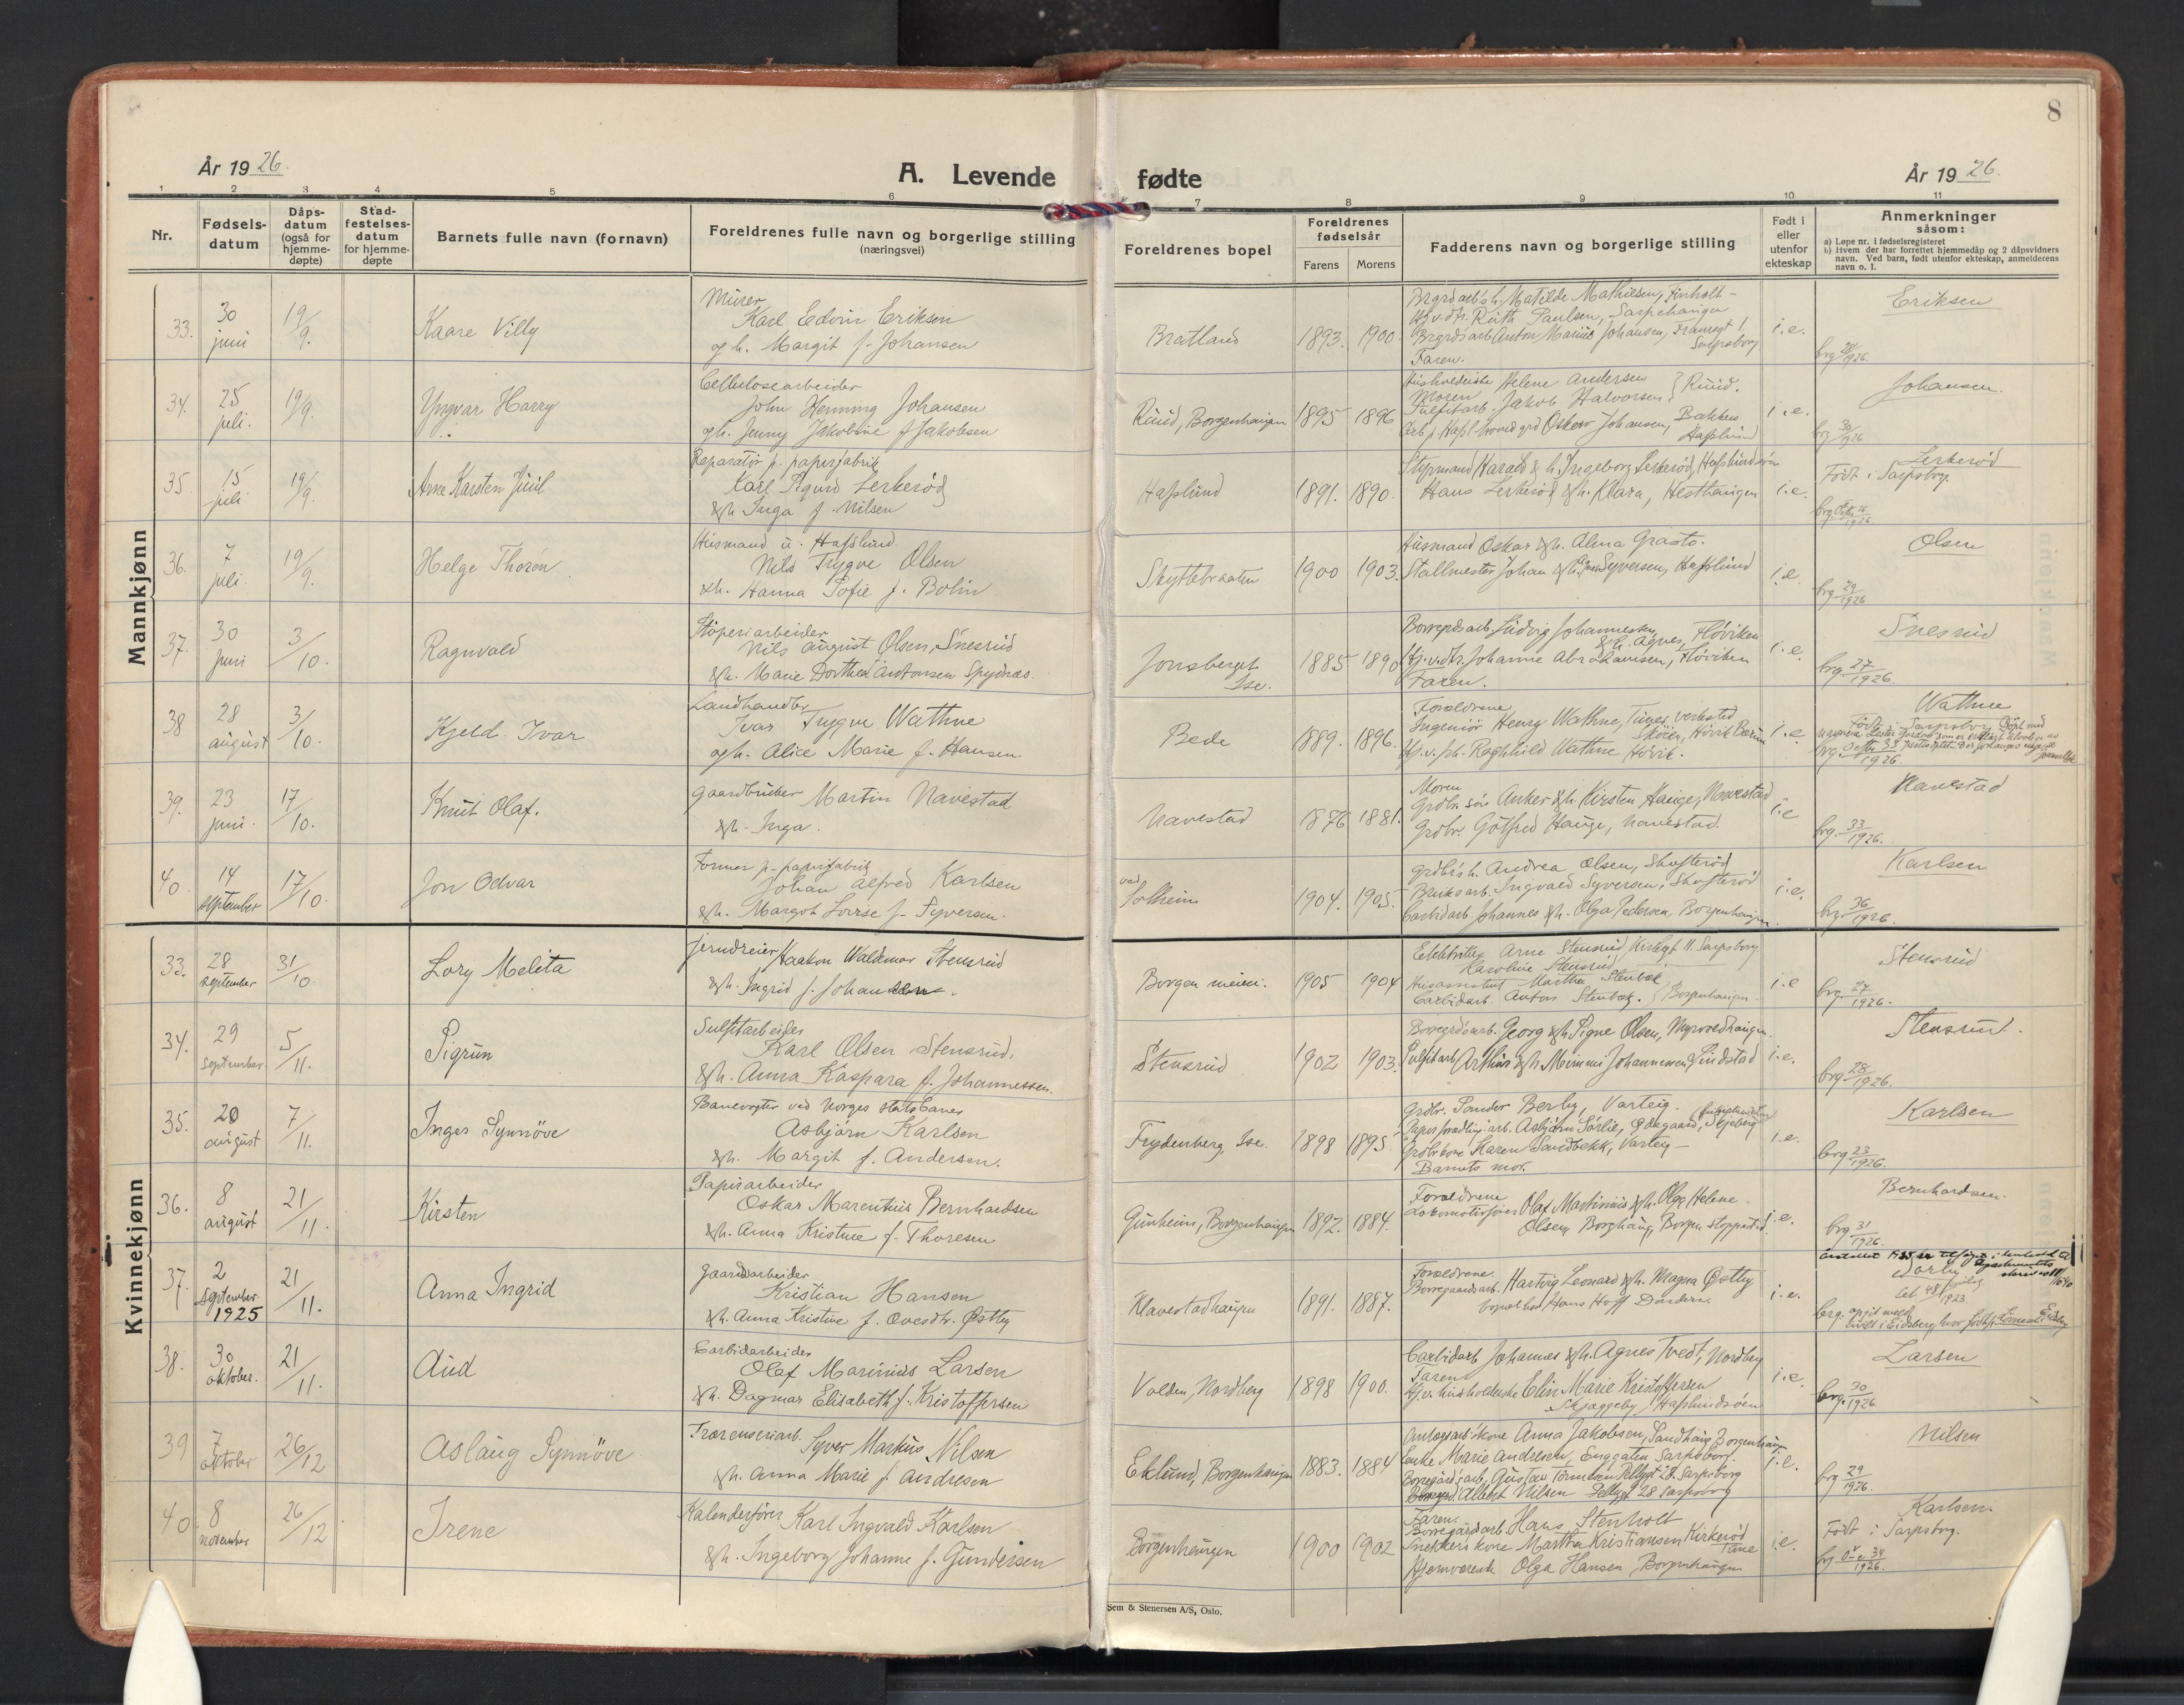 8
År 1926.
A. Levende fødte
År 1926.
1 2 3 4 5 6 7 8 9 10 11
Nr.
Fødsels-
datum
Dåps-
datum
(også for
hjemme-
døpte)
Stad-
festelses-
datum
for hjemme-
døpte
Barnets fulle navn (fornavn)
Foreldrenes fulle navn og borgerlige stilling
(næringsvei)
Foreldrenes bopel
Foreldrenes
fødselsår
Farens Morens
Fadderens navn og borgerlige stilling
Født i
eller
utenfor
ekteskap
Anmerkninger
såsom:
a) Løpe nr. i fødselsregisteret
b) Hvem der har forrettet hjemmedåp og 2 dåpsvidners
navn. Ved barn, født utenfor ekteskap, anmelderens
navn o. l.
Mannkjønn
33. 30 juni 19/9. Kaare Villy
Murer
Karl Edvin Eriksen
og h. Margit f. Johansen
Bratland 1893. 1900.
Matilde Mathiesen,
Ruth Paulsen, Sarpehaugen
Anton Marius Johansen,
Sarpsborg
Faren.
i.e. Eriksen
1926
34. 25 juli. 19/9. Yngvar Harry
Cellulosearbeider
John Henning Johansen
og h. Jenny Jakobine f. Jakobsen
Ruud, Borgenhaugen 1895 1896
Helene Andersen
Moren
Sulfitarb. Jakob Halvorsen } Ruud.
Oskar Johansen, Bakken
Hafslund
i.e. Johansen.
brg 30/1926
35 15 juli 19/9. Arne Karsten Juul
Reparatør p. papirfabrik
Karl Sigurd Lerkerød
& h. Inga f. Nilsen
Hafslund 1891. 1890.
Harald & h. Ingeborg Lerkerød, Hafslundsøen
Hans Lerkerød & h. Klara, Hesthaugen
i.e. Lerkerød
Født i Sarpsborg.
1926
36. 7 juli. 19/9. Helge Thorøn
Husmand u. Hafslund
Nils Trygve Olsen
& h. Hanna Sofie f. Bolin
Skyttebraaten 1900 1903.
Husmand Oskar & h. Alma Grasto.
Stallmester Johan & h. Syversen, Hafslund
i.e. Olsen
brg. 29/1926
37. 30 juni 3/10. Ragnvald
Støperiarbeider
Nils August Olsen, Snesrud
& h. Marie Dorthea Antonsen
Jonsberget
Ise. 1885 1890
Ludvig Johannesen
& h. Agnes, Fløviken
Hj.v.dtr. Johanne Abrahamsen, Fløviken
Faren.
i.e. Snesrud
brg. 27/1926.
38 28 august 3/10. Kjeld Ivar
Landhandler
Ivar Trygve Wathne
og h. Alice Marie f. Hansen.
Bede 1889. 1896.
Foreldrene
Ingeniør Henry Wathne,
Høvik Bærum
Ragnhild Wathne Høvik.
i.e Wathne
Født i Sarpsborg
1926.
39. 23 juni. 17/10. Knut Olaf.
Gaardbruker Martin Navestad
& h. Inga.
Navestad 1876 1881.
Moren
Grdbr. søn Anker & h. Kirsten Hauge, Navestad
Grdbr. Gotfred Hauge, Navestad.
i.e Navestad
brg. 33/1926.
40. 14 september 17/10. Jon Odvar
Former p. papirfabrik
Johan Alfred Karlsen
& h. Margot Lovise f. Syversen.
ved
Solheim 1904. 1905.
Andrea Olsen, Skofterød
Bruksarb. Ingvald Syversen, Skofterød
Carbidarb. Johannes & h. Olga Pedersen, Borgenhaugen.
i.e. Karlsen
brg. 36/1926.
Kvinnekjønn
33. 28 september 31/10 Lory Melita
Jerndreier Haakon Waldemar Stensrud
& h. Ingrid f. Johansen.
Borgen meieri. 1905 1904
Arne Stensrud, 11. Sarpsborg
Karoline Stensrud
Martha Stenbæk
Carbidarb. Anton Stenbæk. } Borgenhaugen
i.e Stensrud
brg. 27/1926.
34. 29 september. 5/11. Sigrun
Sulfitarbeider
Karl Olsen Stensrud.
& h. Anna Kaspara f. Johannessen.
Stensrud 1902 1903.
Georg & h. Signe Olsen,
Sulfitarb. Arthur & h. Mimmi Johannesen,
i.e. Stensrud.
brg. 28/1926.
35. 20 august 7/11. Inger Synnöve
Banevogter ved Norges statsbaner
Asbjörn Karlsen
& h. Margit f. Andersen.
Frydenberg, Ise. 1898 1895
Grdbr. Sander Berby, Varteig.
Asbjörn Sörlie, Skjeberg
Karen Sandbekk, Varteig
Barnets mor.
i.e. Karlsen
brg. 23/1926.
36. 8 august 21/11. Kirsten
Papirarbeider
Oskar Marentius Bernhardsen
& h. Anna Kristine f. Thoresen
Gunheim, Borgenhaugen 1892. 1884.
Foreldrene
Lokomotivfører Olaf Martinius & h. Olga Helene
Olsen, Borghaug, Borgen stoppested
i.e. Bernhardsen.
brg. 31/1926.
37. 2 september 1925 21/11. Anna Ingrid
Gaardsarbeider
Kristian Hansen
& h. Anna Kristine f. Ovesdtr. Østby
Klavestadhaugen 1891. 1887.
Foreldrene
Borregaardsarb. Hartvig Leonard & h. Magna Østby
Hans Hoff
i.e.
38. 30 oktober. 21/11. Aud
Carbidarbeider
Olaf Marinius Larsen
& h. Dagmar Elisabeth f. Kristoffersen
Volden, Nordberg 1898 1900.
Carbidarb. Johannes & h. Agnes Tvedt, Nordberg
Faren
Elin Marie Kristoffersen
Skjaggeby, Hafslundsøen
i.e. Larsen
brg. 30/1926.
39 7 oktober 26/12 Aslaug Synnöve
Syver Markus Nilsen
& h. Anna Marie f. Andresen
Eklund, Borgenhaugen 1883. 1884
Anna Jakobsen, Sandhaug, Borgenhaugen
Enke Marie Andresen, Enggaten Sarpsborg.
Gustav 28 Sarpsborg
Albert Nilsen 28 Sarpsborg
i.e. Nilsen
brg 29/1926.
40 8 november 26/12 Irene
Kalenderfører Karl Ingvald Karlsen
& h. Ingeborg Johanne f. Gundersen
Borgenhaugen 1900 1902
Faren
Borregårdsarb. Hans Stenholt
Snekkers kone Martha Kristiansen Kirkerød
Tune
Hjemværende Olga Hansen, Borgenhaugen
i.e. Karlsen.
Født i Sarpsborg.
1926.
Sem & Stenersen A/S, Oslo.